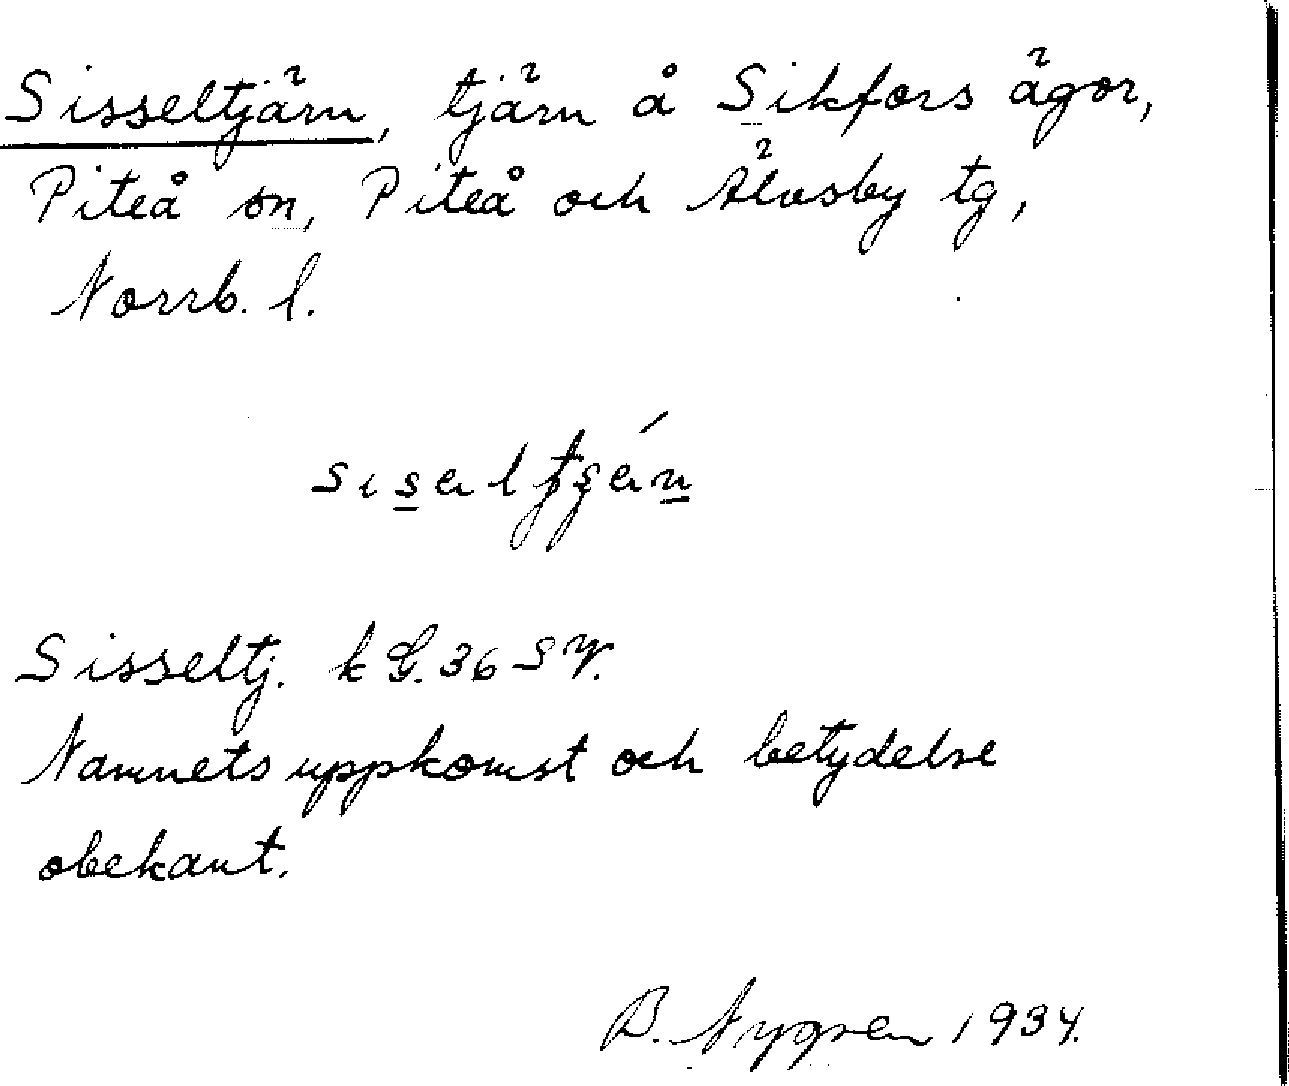 Sisseltjärn, tjärn å Sikfors ägor,
Piteå sn, Piteå och Älvsby tg,
Norrb. l.
Sisseltj. k G. 36 SV.
Namnets uppkomst och betydelse
obekant.
B. Nygren 1934.